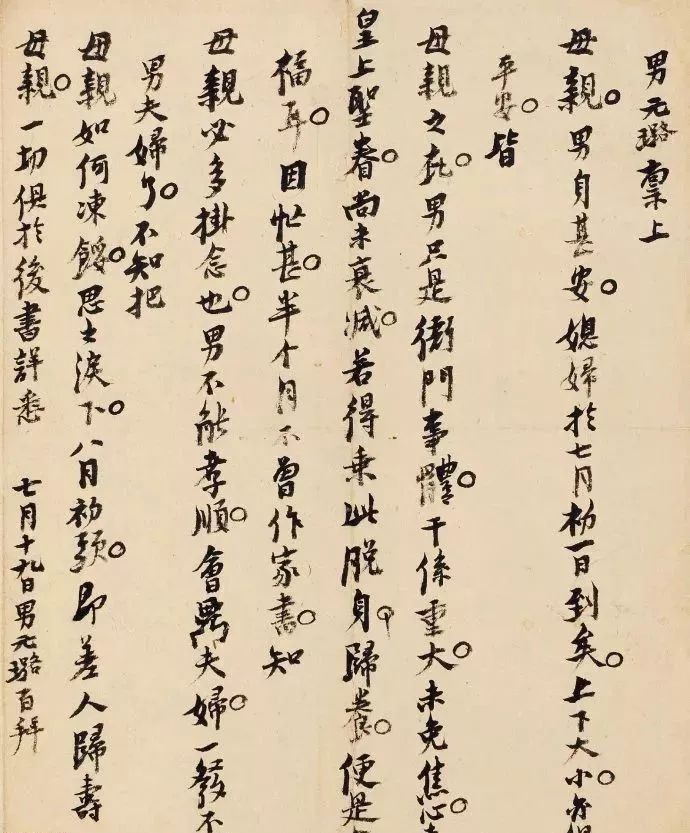 男元璐稟上
母親。男自甚安。媳婦於七月初一日到矣。上下大小。亦
平安。皆
母親之庇。男只是衙門事體。干係重大。未免焦心。
皇上聖眷。尚未衰減。若得乘此脫身。歸養。便是
福耳。因忙甚。半个月不曾作家書。知
母親必多掛念也。男不能孝順。會鼎夫婦。一發不
男夫婦了。不知把
母親如何凍餒。思之淚下。八月初頭。即差人歸壽
母親。一切俱於後書詳悉 七月十九日男元璐百拜